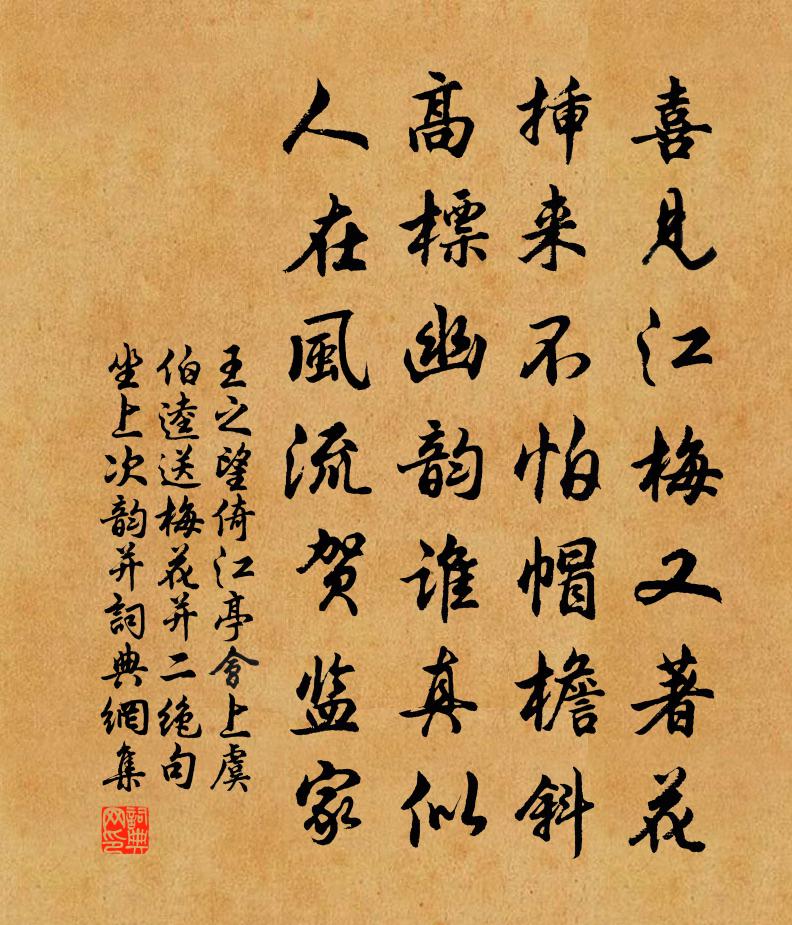 喜見江梅又著花
挿来不怕帽檐斜
髙標幽韵誰真似
人在風流贺监家
王之望倚江亭會上虞
伯逵送梅花并二绝句
坐上次韵并詞典網集
詞典网印